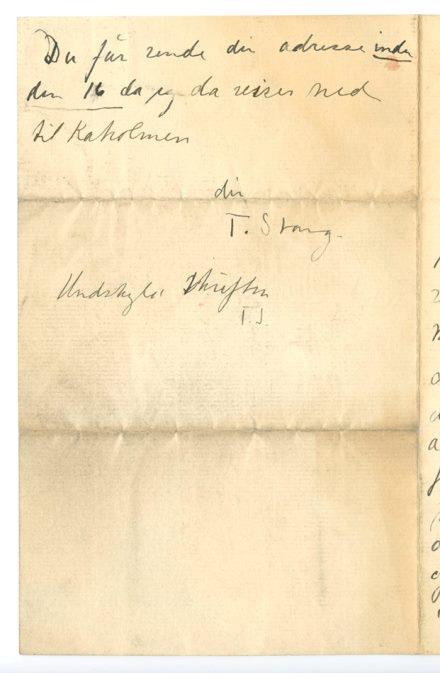 Du får sende din adresse inden
den 16 da jeg da reiser ned
til Kaholmen
din
T. Stang.
Undskyld Skriften
T.S.